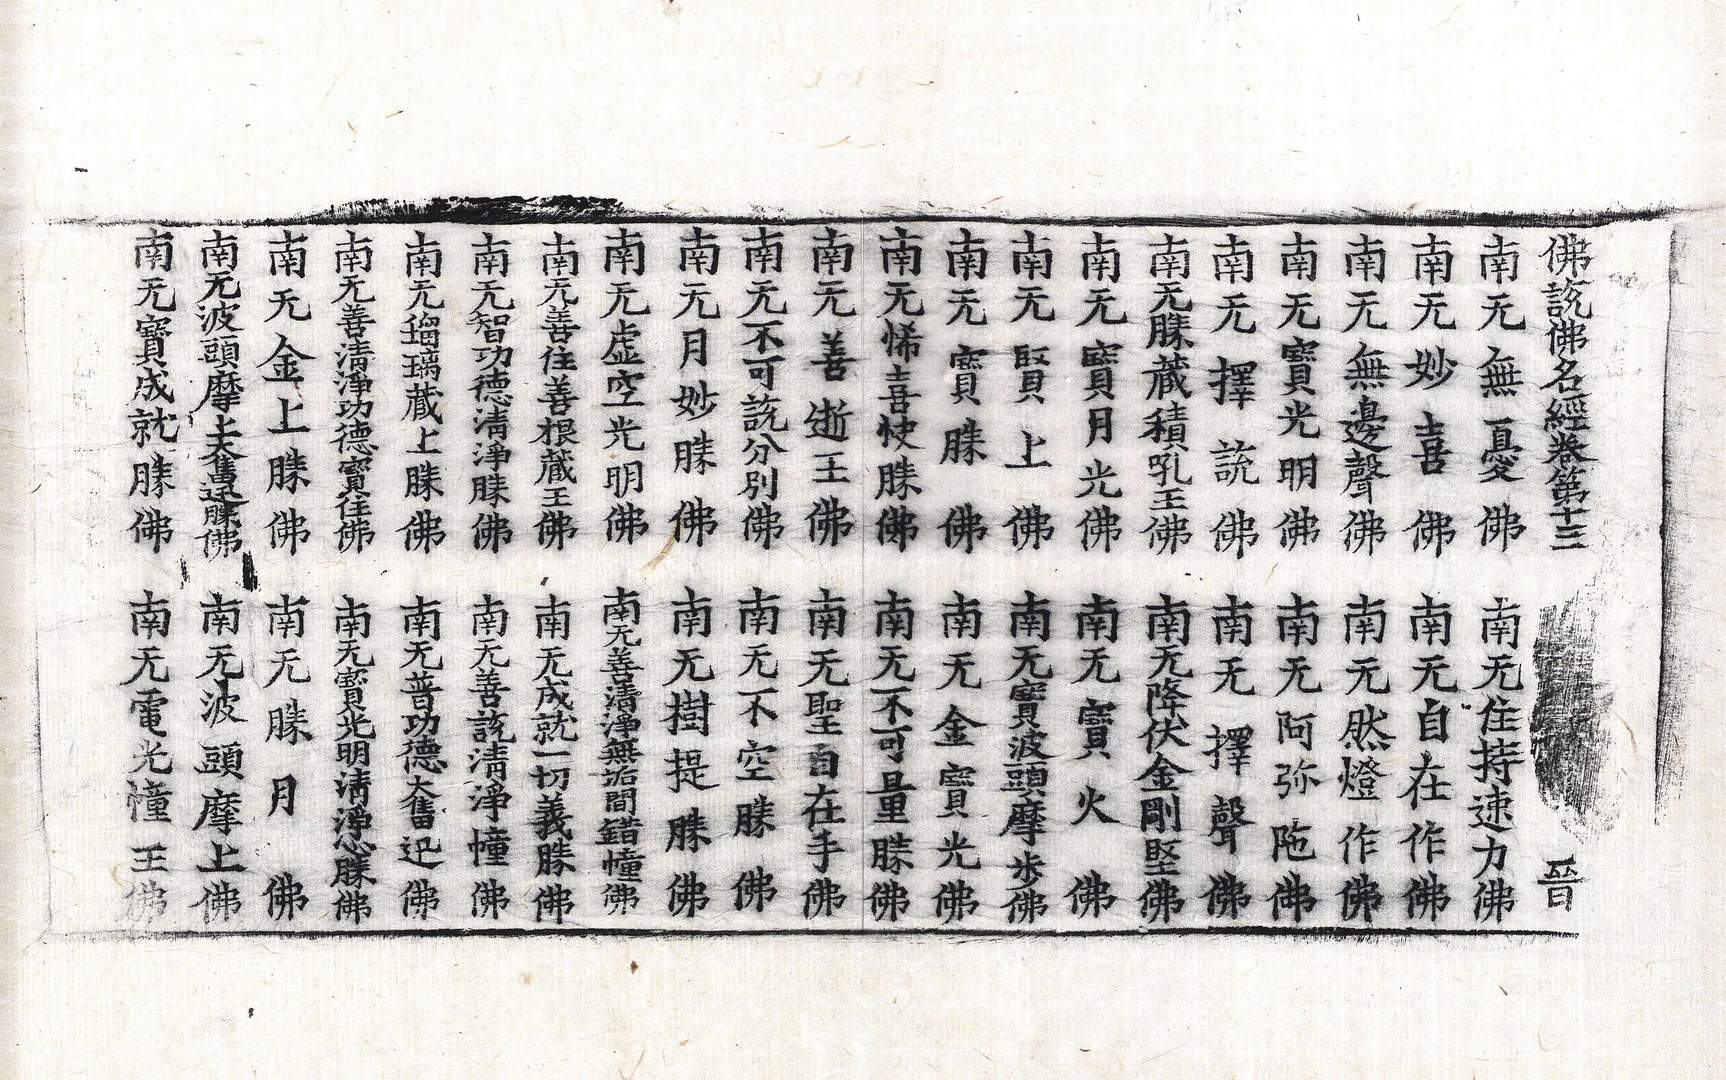 佛說佛名經卷第十三　晉
南无無憂佛　南无住持速力佛
南无妙喜佛　南无自在作佛
南无無邊聲佛　南无然燈作佛
南无寶光明佛　南无阿弥陁佛
南无擇說佛　南无擇聲佛
南无勝藏積吼王佛　南无降伏金剛堅佛
南无寶月光佛　南无寶火佛
南无賢上佛　南无寶波頭摩步佛
南无寶勝佛　南无金寶光佛
南无悕喜快勝佛　南无不可量勝佛
南无善逝王佛　南无聖自在手佛
南无不可說分別佛　南无不空勝佛
南无月妙勝佛　南无樹提勝佛
南无虛空光明佛　南无善清淨無垢間錯幢佛
南无善住善根藏王佛　南无成就一切義勝佛
南无智功德清淨勝佛　南无善說清淨幢佛
南无瑠璃藏上勝佛　南无普功德大奮迅佛
南无善清淨功德寶住佛　南无寶光明清淨心勝佛
南无金上勝佛　南无勝月佛
南无波頭摩上大奮迅勝佛　南无波頭摩上佛
南无寶成就勝佛　南无電光幢王佛